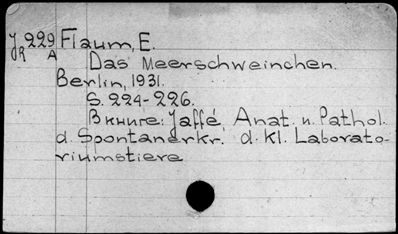 J 229 Flaum, E.
R A
Das Meerschweinchen.
Berlin, 1931.
S. 224-226.
В книге: Jaffé, Anat. u. Pathol.
d. Spontanerkr. d. kl. Laborato-
riumstiere